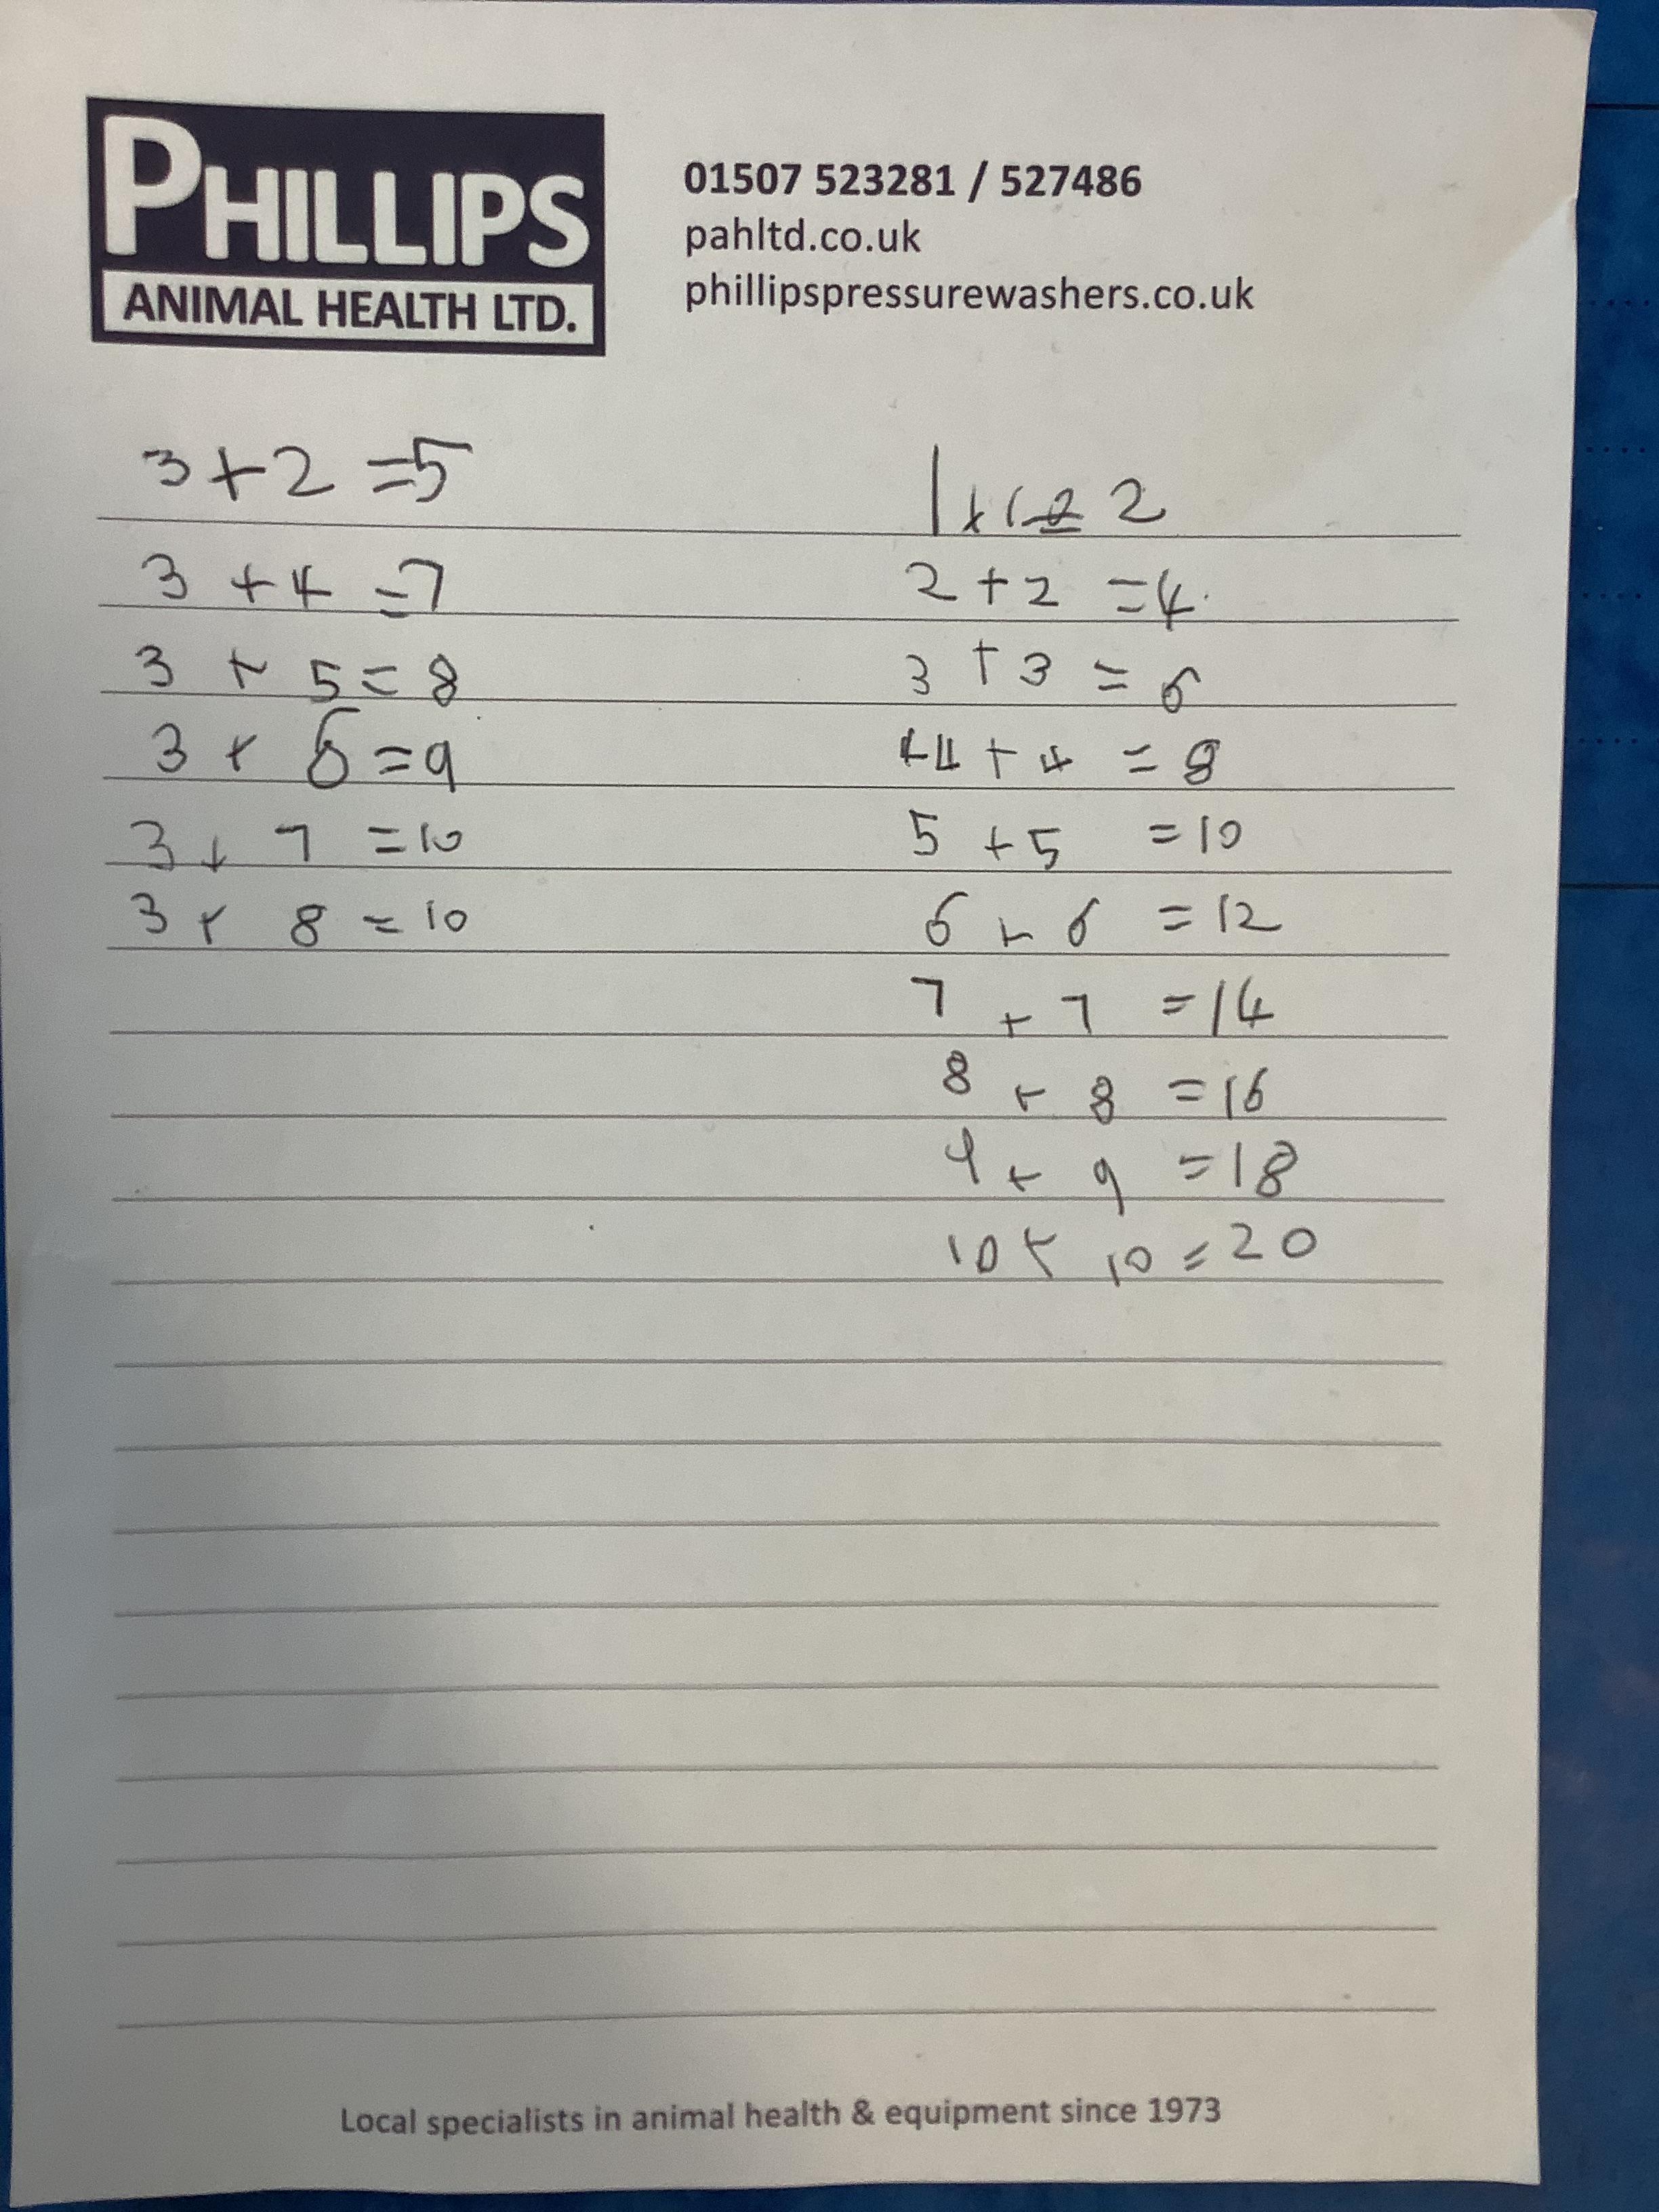 PHILLIPS
ANIMAL HEALTH LTD.
01507 523281 / 527486
pahltd.co.uk
phillipspressurewashers.co.uk
3 + 2 = 5
3 + 4 = 7
3 + 5 = 8
3 + 6 = 9
3 + 7 = 10
3 + 8 = 10
1 + 1 = 2
2 + 2 = 4
3 + 3 = 6
4 + 4 = 8
5 + 5 = 10
6 + 6 = 12
7 + 7 = 14
8 + 8 = 16
9 + 9 = 18
10 + 10 = 20
Local specialists in animal health & equipment since 1973